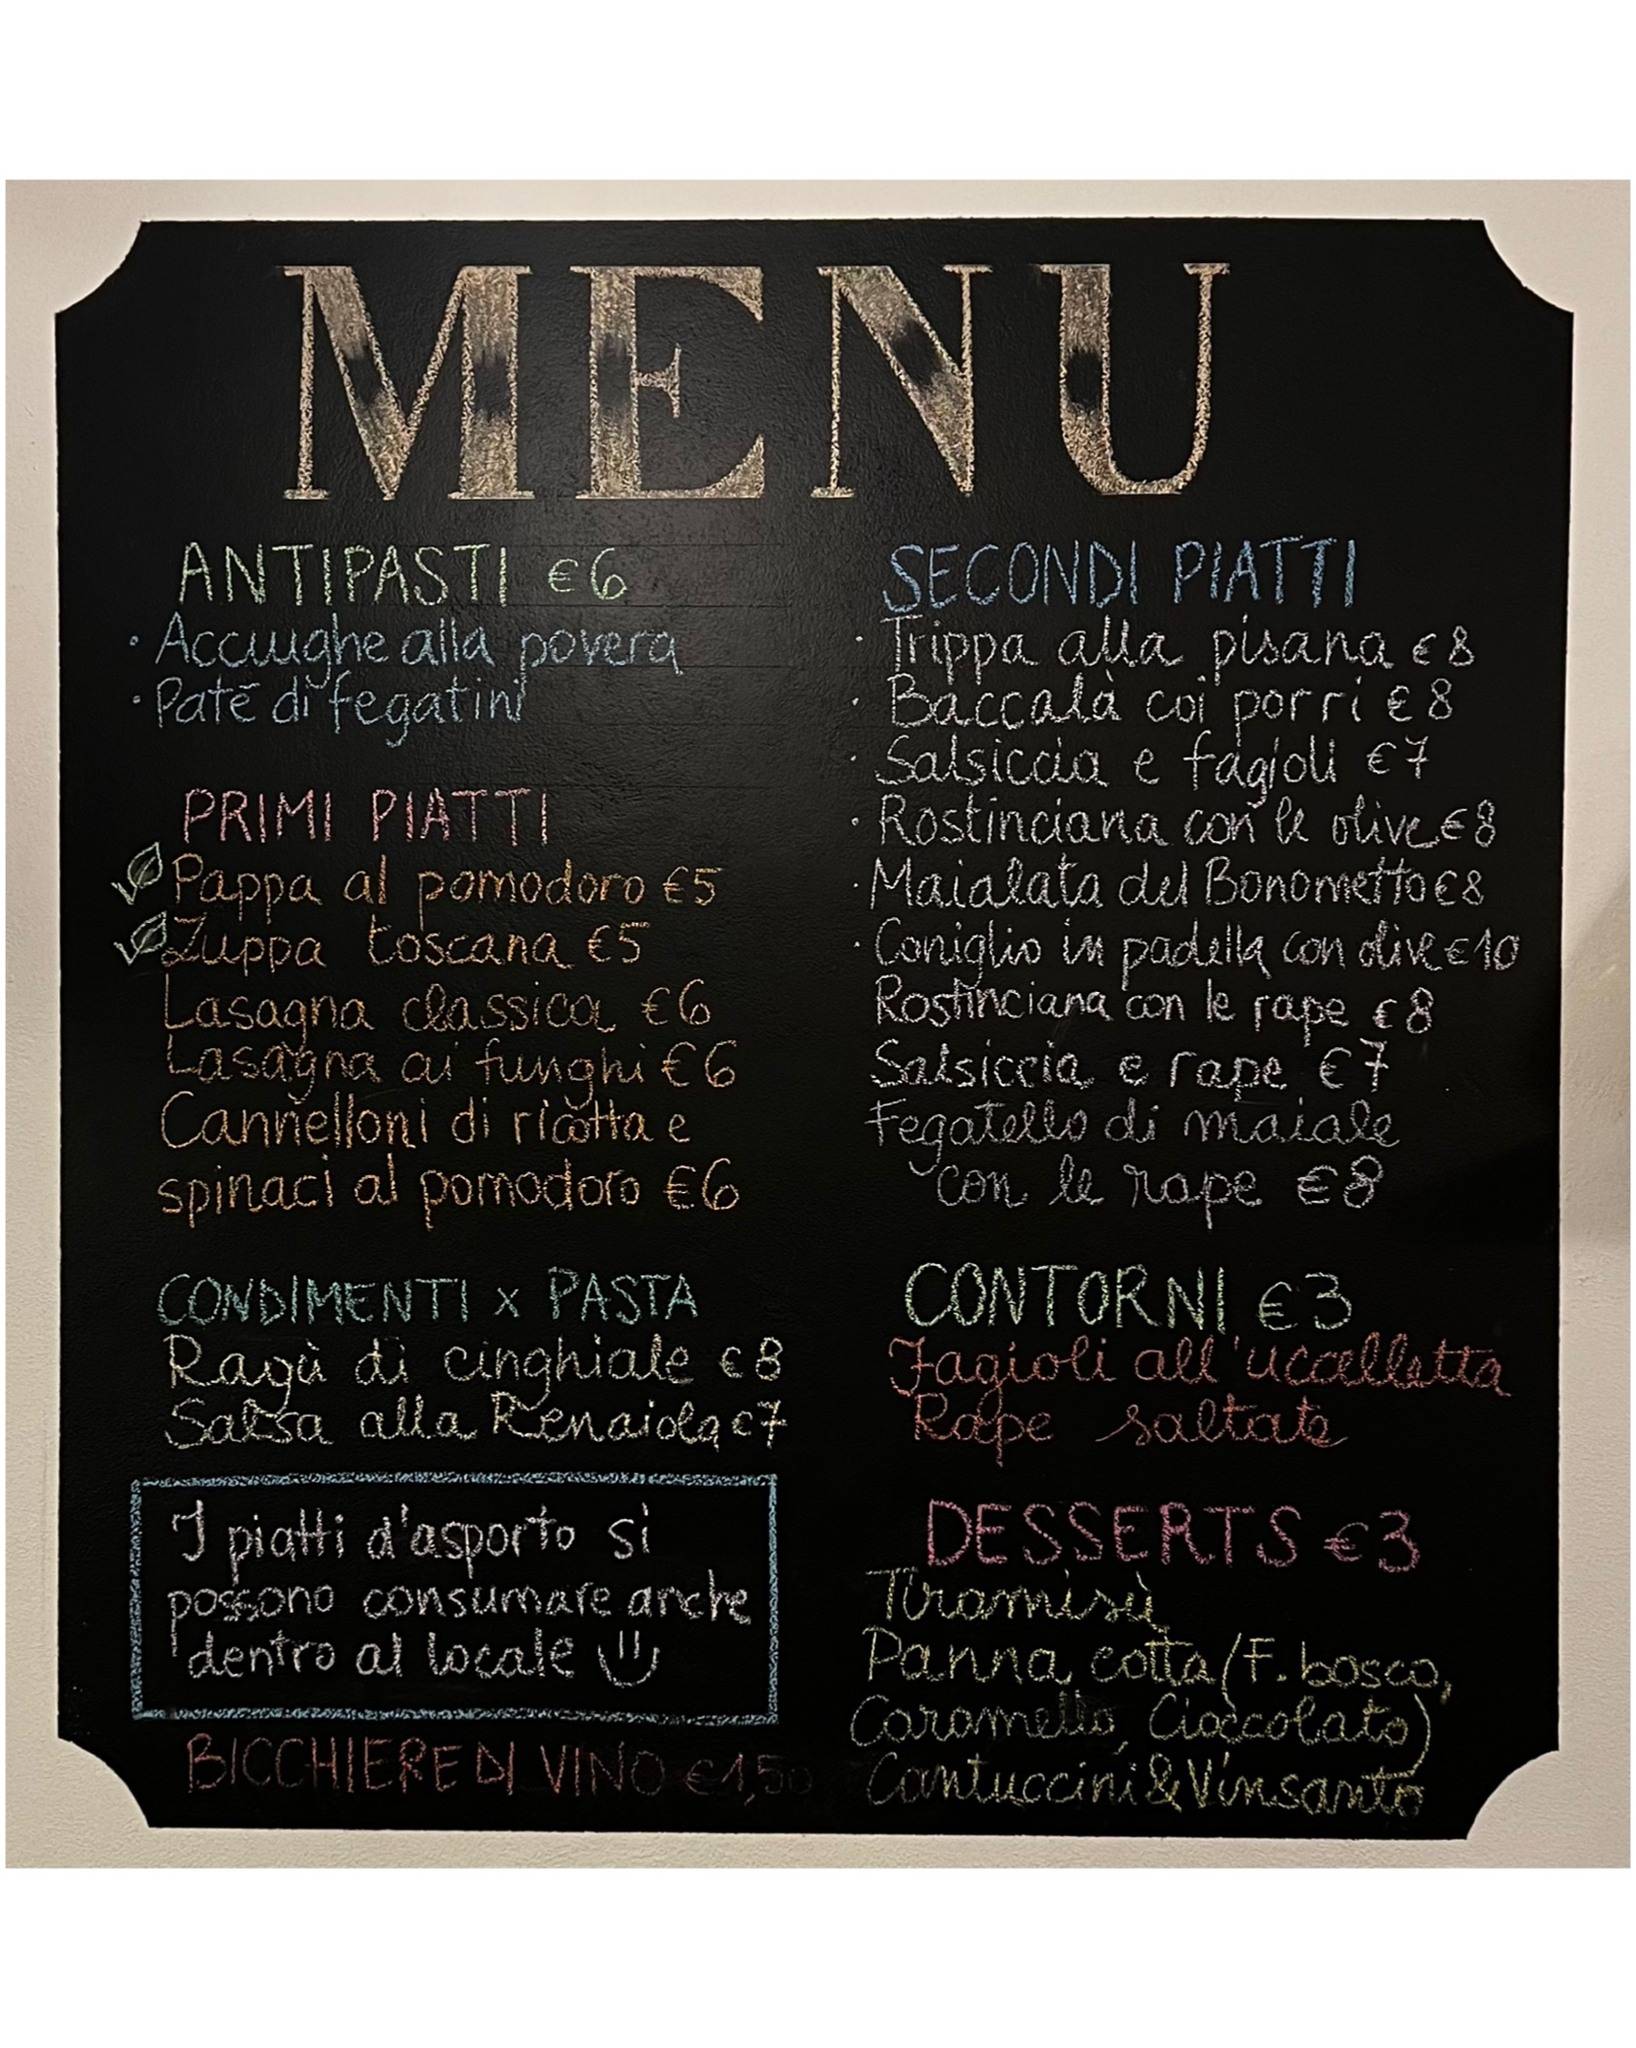 MENU
ANTIPASTI €6
· Acciughe alla povera
· Patè di fegatini
PRIMI PIATTI
Pappa al pomodoro €5
Zuppa toscana €5
Lasagna classica €6
Lasagna ai funghi €6
Cannelloni di ricotta e
spinaci al pomodoro €6
CONDIMENTI x PASTA
Ragù di cinghiale €8
Salsa alla Renaiola €7
I piatti d'asporto si
possono consumare anche
dentro al locale
BICCHIERE DI VINO €1,50
SECONDI PIATTI
· Trippa alla pisana €8
· Baccalà coi porri €8
· Salsiccia e fagioli €7
· Rostinciana con le olive €8
· Maialata del Bonometto €8
· Coniglio in padella con olive €10
Rostinciana con le rape €8
Salsiccia e rape €7
Fegatello di maiale
con le rape €8
CONTORNI €3
Fagioli all'uccelletta
Rape saltate
DESSERTS €3
Tiramisù
Panna cotta (F. bosco,
Caramello, Cioccolato)
Cantuccini & Vinsanto